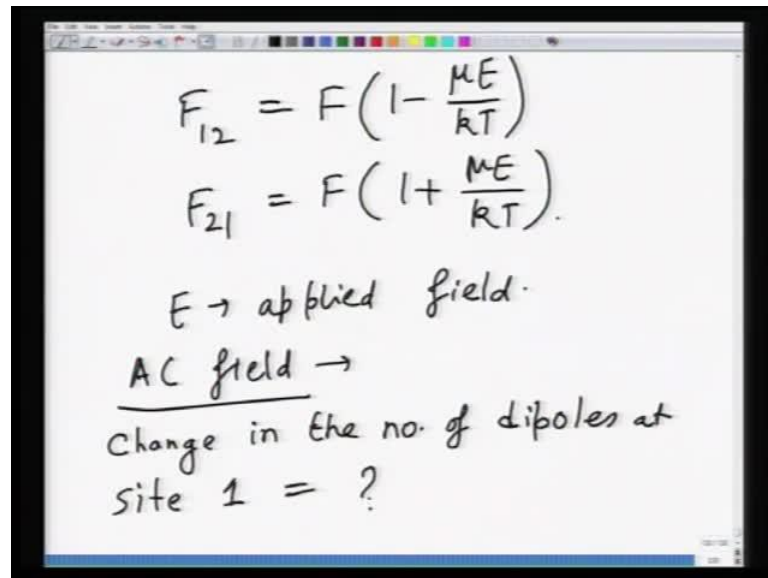 F₁₂ = F(1 - μE/kT)
F₂₁ = F(1 + μE/kT).
E → applied field.
AC field →
Change in the no. of dipoles at
site 1 = ?